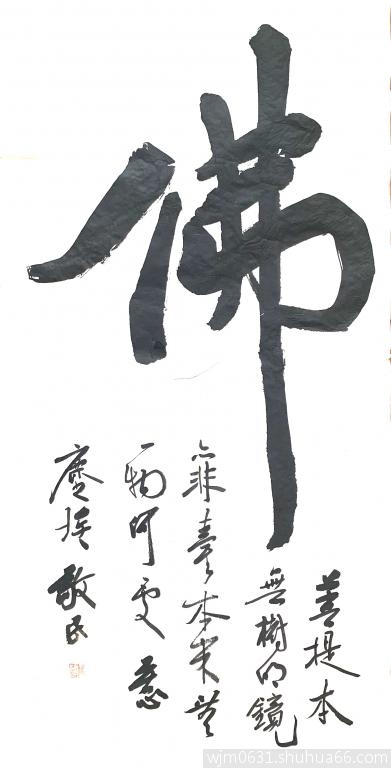 佛
菩提本
無樹明鏡
亦非臺本来無
一物何處惹
塵埃敬民
wjm0631.shuhua66.com